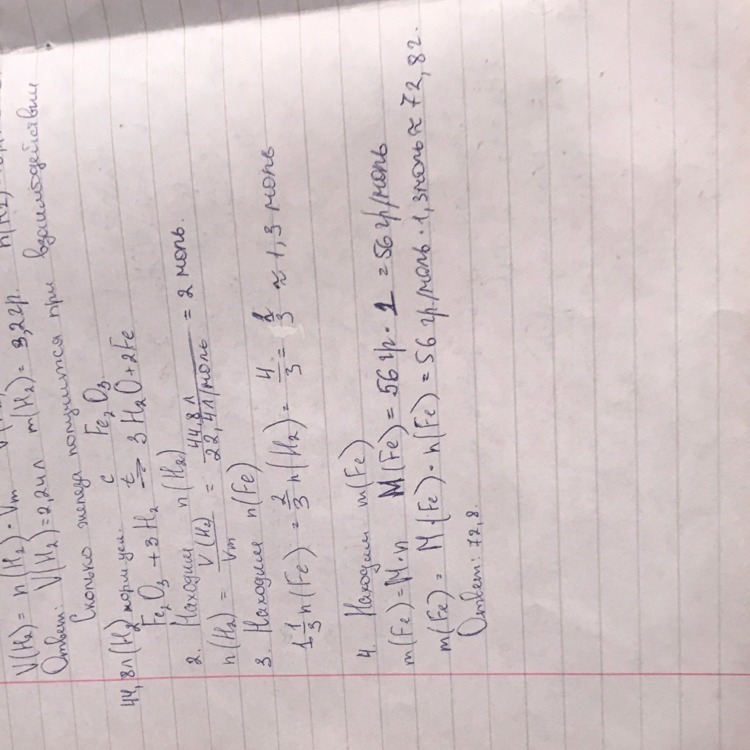 V(H₂) = n(H₂) · Vm
Ответ: V(H₂) = 2,24л m(H₂) = 3,2гр.
Сколько железа получится при взаимодействии
44,8л(H₂) норм усл. с Fe₂O₃
Fe₂O₃ + 3H₂ t→ 3H₂O + 2Fe
2. Находим n(H₂)
n(H₂) = V(H₂)/Vm = 44,8л/22,4л/моль = 2 моль.
3. Находим n(Fe)
1 1/3 n(Fe) = 2/3 n(H₂) = 4/3 = 1/3 ≈ 1,3 моль
4. Находим m(Fe)
m(Fe) = M · n M(Fe) = 56гр · 1 = 56 гр/моль
m(Fe) = M(Fe) · n(Fe) = 56 гр/моль · 1,3моль ≈ 72,8г.
Ответ: 72,8.